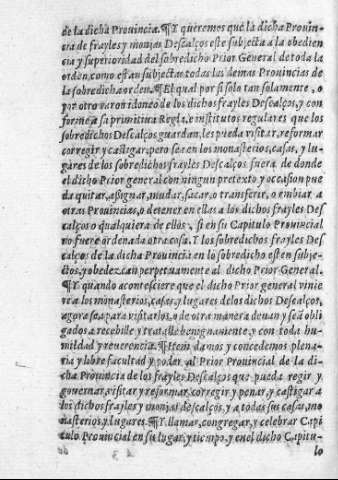 de la dicha Prouincia. ¶ Y queremos que la dicha Prouin-
cia de frayles y monjas Descalços este subjecta a la obedien
cia y superioridad del sobredicho Prior General de toda la
orden, como estan subjectas todas las demas Prouincias de
la sobredicha orden. ¶ El qual por si solo tan solamente, o
por otro varon idoneo de los dichos frayles Descalços, y con
forme a su primitiua Regla, e institutos regulares que los
sobredichos Descalços guardan, les pueda visitar, reformar
corregir y castigar, pero sea en los monasterios, casas, y lu-
gares de los sobredichos frayles Descalços fuera de donde
el dicho Prior general con ningun pretexto y occasion pue
da quitar, assignar, mudar, sacar, o transferir, o embiar a
otras Prouincias, o detener en ellas a los dichos frayles Des
calços o qualquiera de ellos, si en su Capitulo Prouincial
no fuere ordenada otra cosa. Y los sobredichos frayles Des
calços de la dicha Prouincia en lo sobredicho esten subje-
ctos, y obedezcan perpetuamente al dicho Prior General.
¶ Y quando aconteSciere que el dicho Prior general vinie
re a los monasterios, casas, y lugares de los dichos Descalços,
agora sea para visitarlos, o de otra manera deuan y seã obli
gados a recebille y tratalle benignamente, y con toda hu-
mildad y reuerencia. ¶ Item damos y concedemos plena-
ria y libre facultad y poder al Prior Prouincial de la di-
cha Prouincia de los frayles Descalços que pueda regir y
gouernar, visitar y reformar, corregir y penar, y castigar a
los dichos frayles y monjas descalços, y a todas sus casas, mo
nasterios, y lugares. ¶ Y llamar, congregar, y celebrar Capi
tulo Prouincial en su lugar y tiempo, y en el dicho Capitu-
lo